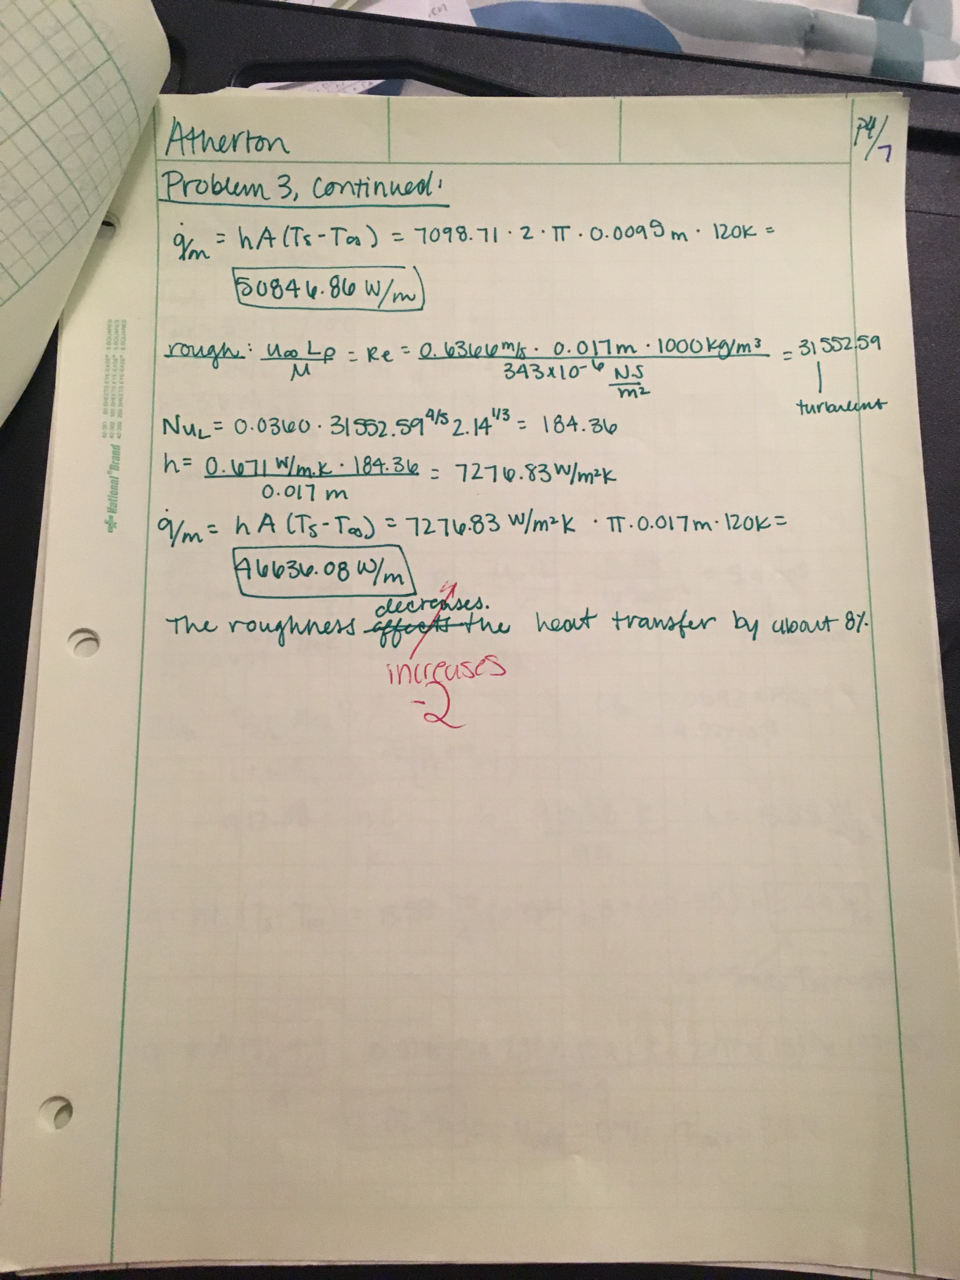 Atherton
P4/7
Problem 3, continued:
q̇/m = hA(Ts-T∞) = 7098.71 · 2 · π · 0.0095m · 120K =
50846.86 W/m
rough: u∞Lρ/μ = Re = 0.6366 m/s · 0.017m · 1000kg/m³ / 343x10⁻⁶ N.S/m² = 31552.59
turbulent
NuL = 0.0360 · 31552.59^4/5 2.14^1/3 = 184.36
h = 0.671 W/m.K · 184.36 / 0.017 m = 7276.83 W/m²K
q̇/m = hA(Ts-T∞) = 7276.83 W/m²K · π · 0.017m · 120K =
46636.08 W/m
decreases.
The roughness affects the heat transfer by about 8%.
increases
-2
National® Brand